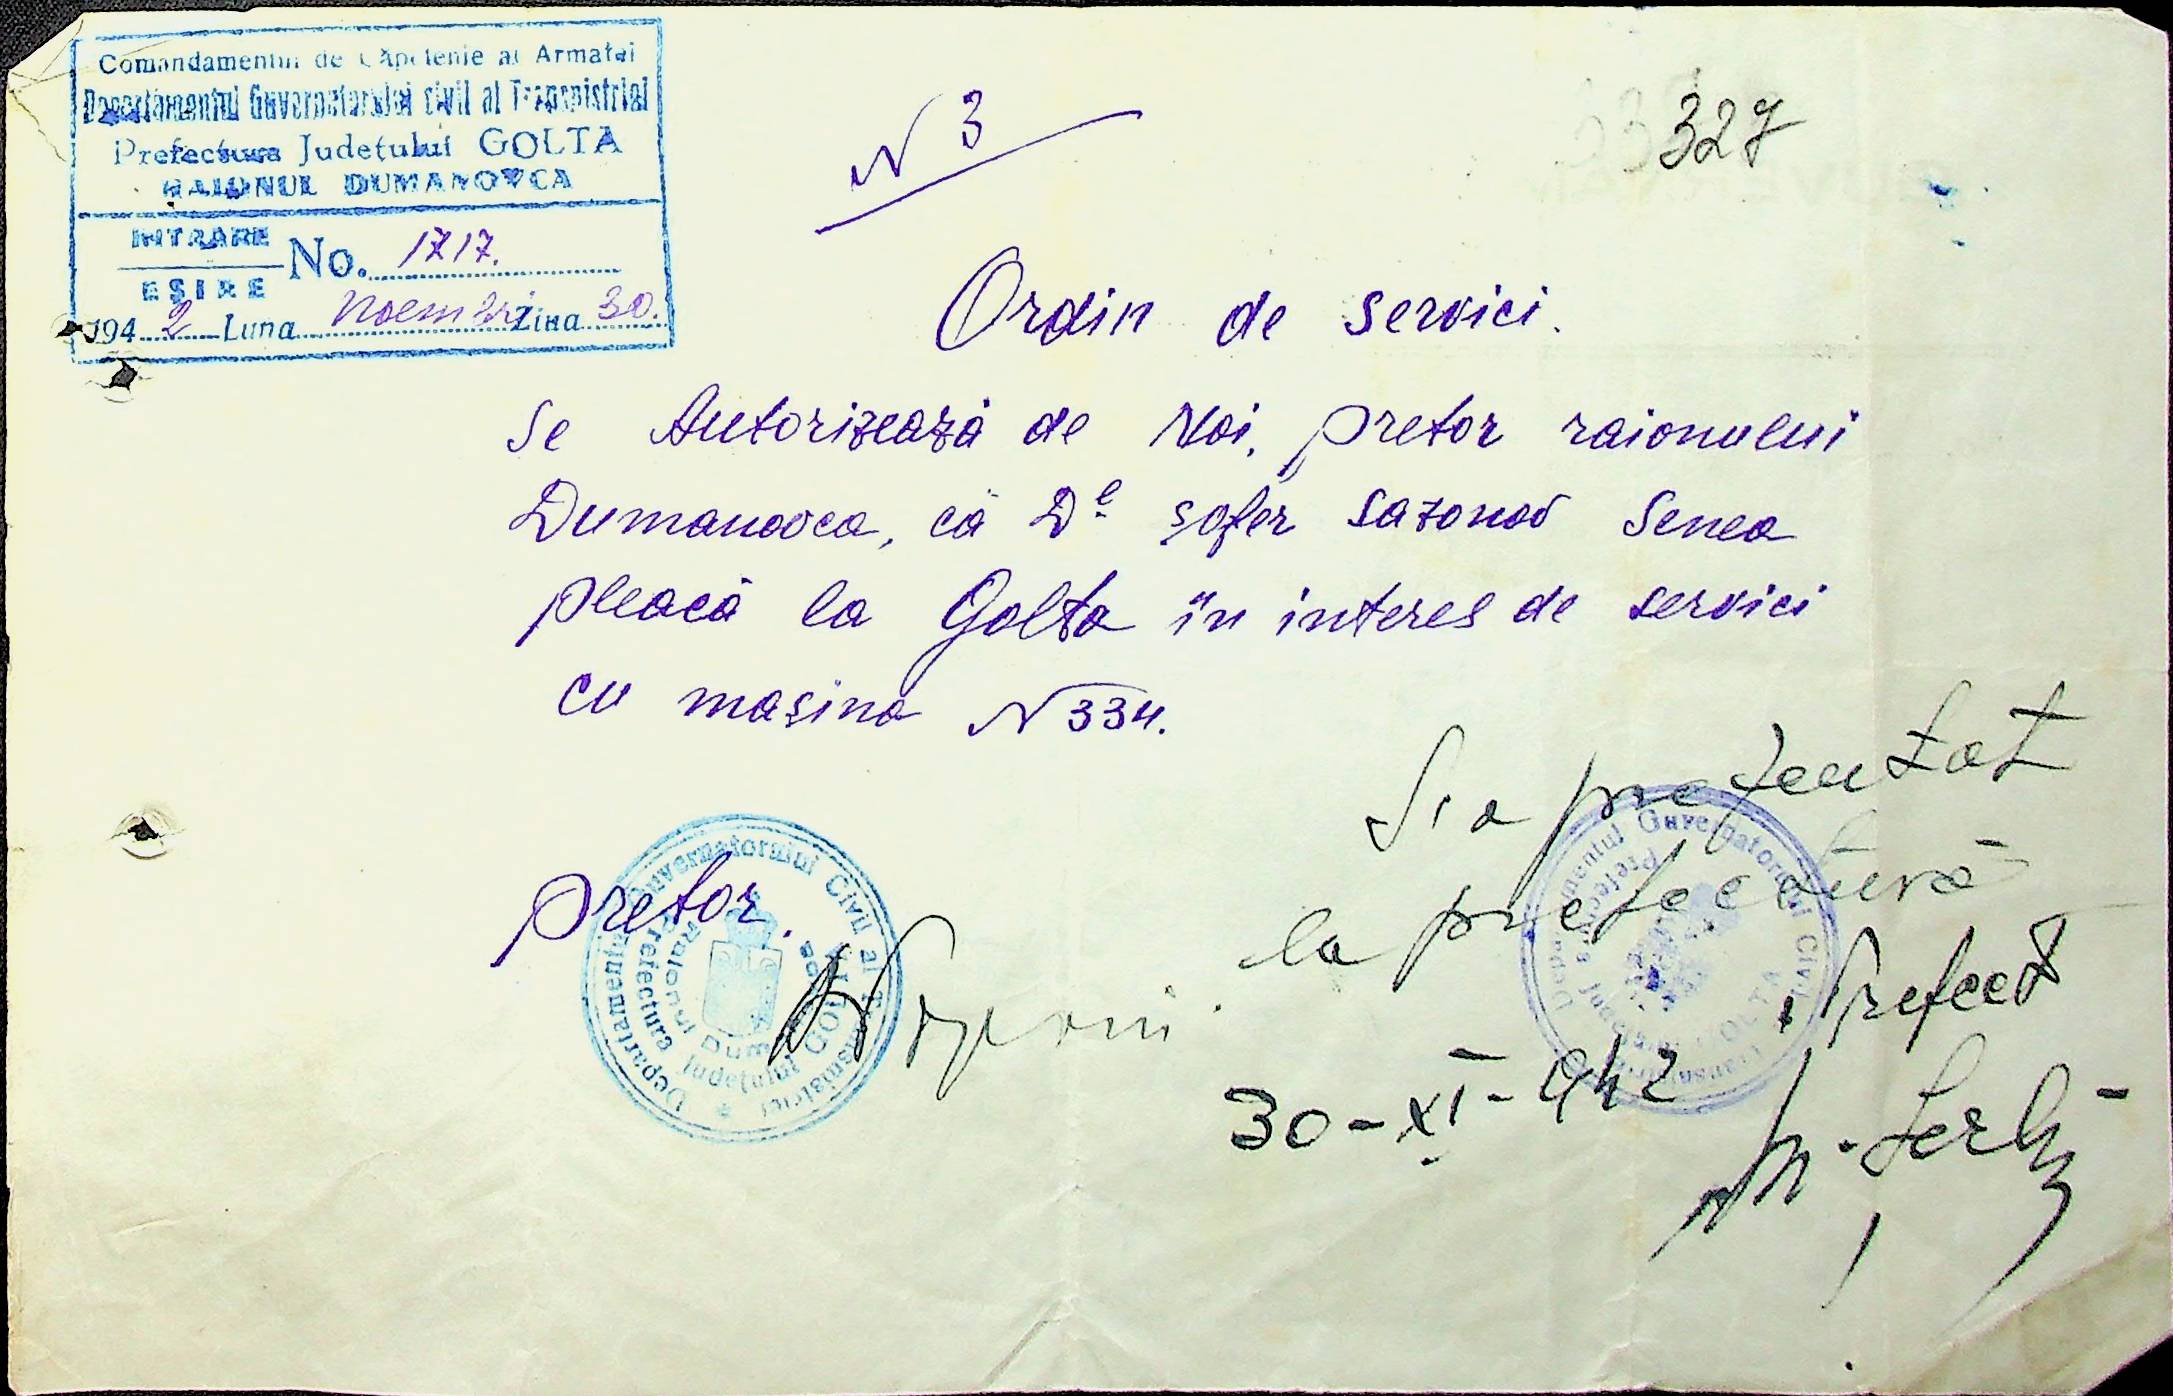 Comandamentul de Căpetenie al Armatei
Departamentul Guvernatorului civil al Transnistriei
Prefectura Județului GOLTA
RAIONUL DUMANOVCA
INTRARE
EȘIRE
No. 1717.
1942 Luna Noembri Ziua 30.
N 3
327
Ordin de servici.
Se Autorizează de Noi, pretor raionului
Dumanovca, că Dl șofer Sazonov Senea
pleacă la Golta în interes de servici
cu mașina N 334.
pretor.
Departamentul Guvernatorului Civil al Transnistriei
Prefectura Județului GOLTA
Raionul Dum
S'a prezentat
la prefectură
Prefect
30-XI-942
Departamentul Guvernatorului Civil al Transnistriei
Prefectura Județului GOLTA